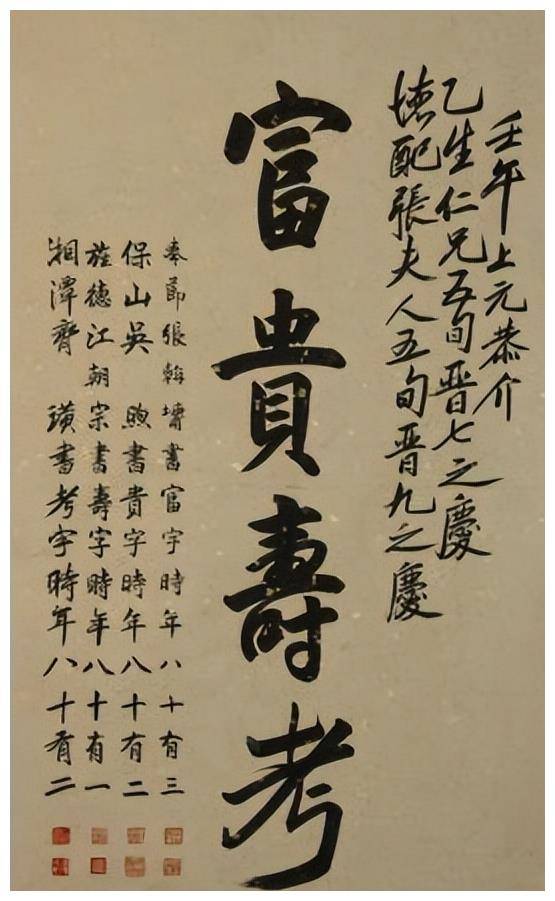 壬午上元恭介
乙生仁兄五旬晋七之慶
德配張夫人五旬晋九之慶
富貴壽考
奉節張朝墉書富字時年八十有三
保山吳煦書貴字時年八十有二
旌德江朝宗書壽字時年八十有一
湘潭齊璜書考字時年八十有二